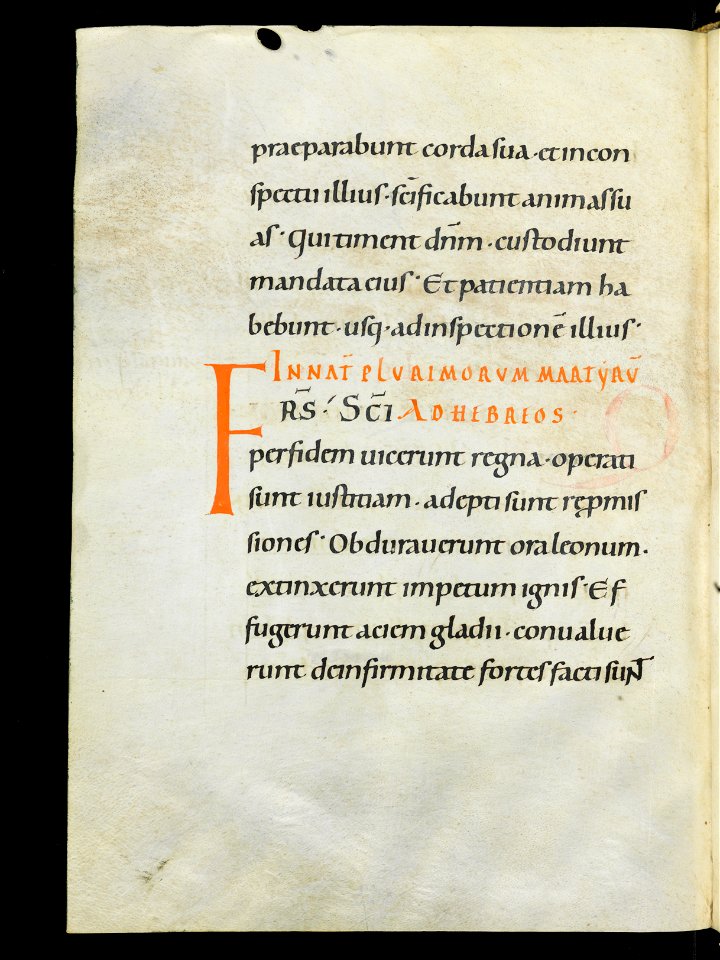 praeparabunt corda sua · et in con
spectu illius · sc̄ificabunt animas su
as · Qui timent dn̄m · custodiunt
mandata eius · Et patientiam ha
bebunt · usq· ad inspectionē illius ·
IN NAT̄ PLURIMORUM MARTYRŪ
R̄S · SC̄I AD HEBREOS ·
F
per fidem uicerunt regna · operati
sunt iustitiam · adepti sunt rep̱mis
siones · Obdurauerunt ora leonum ·
extinxerunt impetum ignis · Ef
fugerunt aciem gladii · conualue
runt de infirmitate fortes facti suNT